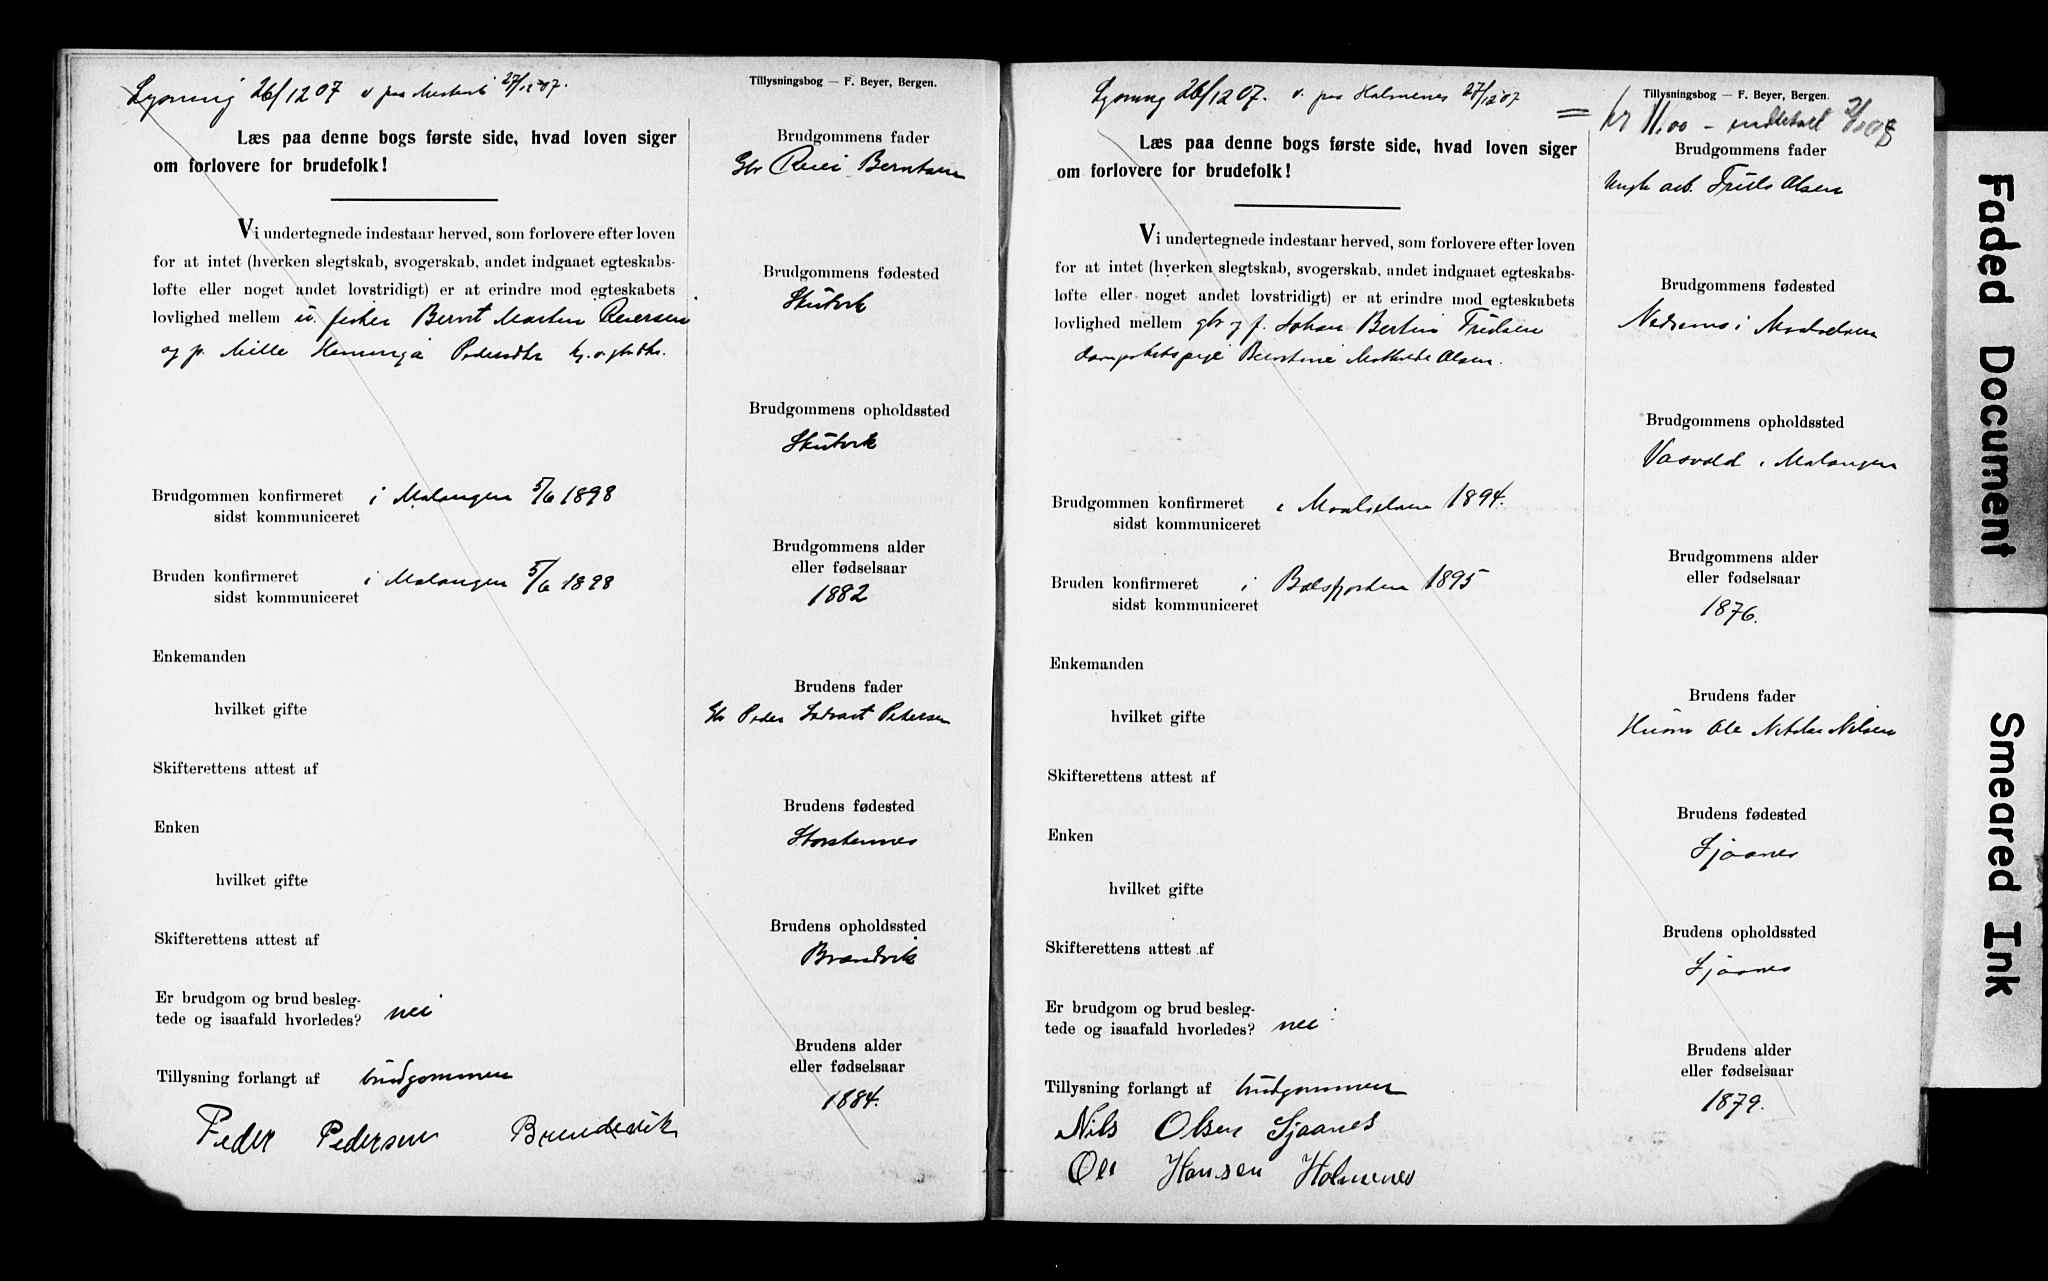 Lysning 26/12 07 v. paa 27/12 07.
Tillysningsbog — F. Beyer, Bergen.
Læs paa denne bogs første side, hvad loven siger
om forlovere for brudefolk!
Vi undertegnede indestaar herved, som forlovere efter loven
for at intet (hverken slegtskab, svogerskab, andet indgaaet egteskabs-
løfte eller noget andet lovstridigt) er at erindre mod egteskabets
lovlighed mellem u. fisker Bernt Martin Reiersen
og p. Mille Pedersdtr
Brudgommen konfirmeret i Malangen 5/6 1898
sidst kommuniceret
Bruden konfirmeret i Malangen 5/6 1898
sidst kommuniceret
Enkemanden
hvilket gifte
Skifterettens attest af
Enken
hvilket gifte
Skifterettens attest af
Er brudgom og brud besleg-
tede og isaafald hvorledes? nei
Tillysning forlangt af brudgommen
Peder Pedersen Brendevik
Brudgommens fader
Gbr Reier Berntsen
Brudgommens fødested
Skutvik
Brudgommens opholdssted
Skutvik
Brudgommens alder
eller fødselsaar
1882
Brudens fader
Gbr Peder Edvart Petersen
Brudens fødested
Storstennes
Brudens opholdssted
Brændvik
Brudens alder
eller fødselsaar
1884.
Lysning 26/12 07. v. paa Holmenes 27/12 07
Tillysningsbog — F. Beyer, Bergen.
kr 11,00 - indbetalt
Læs paa denne bogs første side, hvad loven siger
om forlovere for brudefolk!
Vi undertegnede indestaar herved, som forlovere efter loven
for at intet (hverken slegtskab, svogerskab, andet indgaaet egteskabs-
løfte eller noget andet lovstridigt) er at erindre mod egteskabets
lovlighed mellem gbr og f. Johan Bertin Trulsen
Berntine Mathilde Olsen.
Brudgommen konfirmeret i Maalselven 1894.
sidst kommuniceret
Bruden konfirmeret i Balsfjorden 1895
sidst kommuniceret
Enkemanden
hvilket gifte
Skifterettens attest af
Enken
hvilket gifte
Skifterettens attest af
Er brudgom og brud besleg-
tede og isaafald hvorledes? nei
Tillysning forlangt af brudgommen
Nils Olsen Sjaanes
Ole Hansen Holmenes
Brudgommens fader
Ungk. arb. Truls Olsen
Brudgommens fødested
i Maalselven
Brudgommens opholdssted
i Malangen
Brudgommens alder
eller fødselsaar
1876.
Brudens fader
Husm Ole Nilsen
Brudens fødested
Sjaanes
Brudens opholdssted
Sjaanes
Brudens alder
eller fødselsaar
1879.
Faded Document
Smeared Ink